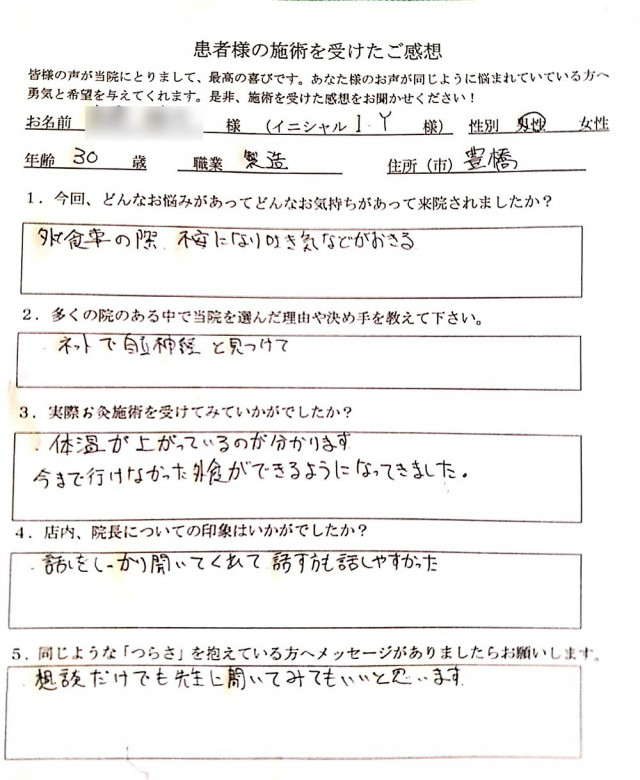 患者様の施術を受けたご感想
皆様の声が当院にとりまして、最高の喜びです。あなた様のお声が同じように悩まれていている方へ
勇気と希望を与えてくれます。是非、施術を受けた感想をお聞かせください！
お名前 様 （イニシャル I・Y 様） 性別 男性 女性
年齢 30 歳 職業 製造 住所（市） 豊橋
1．今回、どんなお悩みがあってどんなお気持ちがあって来院されましたか？
外食事の際 不安になり吐き気などがおきる
2．多くの院のある中で当院を選んだ理由や決め手を教えて下さい。
・ネットで自律神経と見つけて
3．実際お灸施術を受けてみていかがでしたか？
・体温が上がっているのが分かります
今まで行けなかった外食ができるようになってきました。
4．店内、院長についての印象はいかがでしたか？
・話しをしっかり聞いてくれて話す方も話しやすかった
5．同じような「つらさ」を抱えている方へメッセージがありましたらお願いします。
・相談だけでも先生に聞いてみてもいいと思います